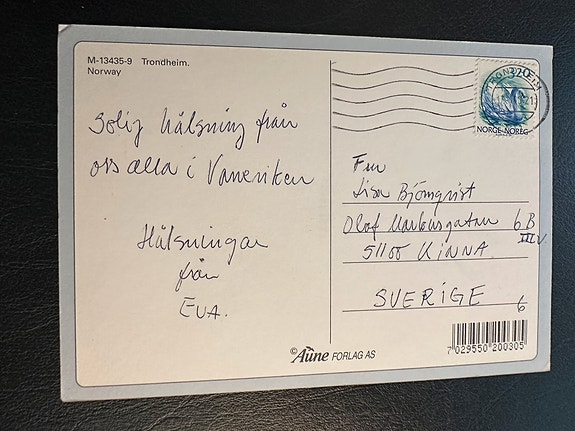 M-13435-9 Trondheim.
Norway
Solig hälsning från
oss alla i Vaneriken
Hälsningar
från
EVA.
TRONDHEIM
3,20
NORGE·NOREG
Fru
Lisa Björnqvist
Olof Markusgatan 6 B
III V
51100 KINNA
SVERIGE
6
©Aune FORLAG AS
7 029550 200305